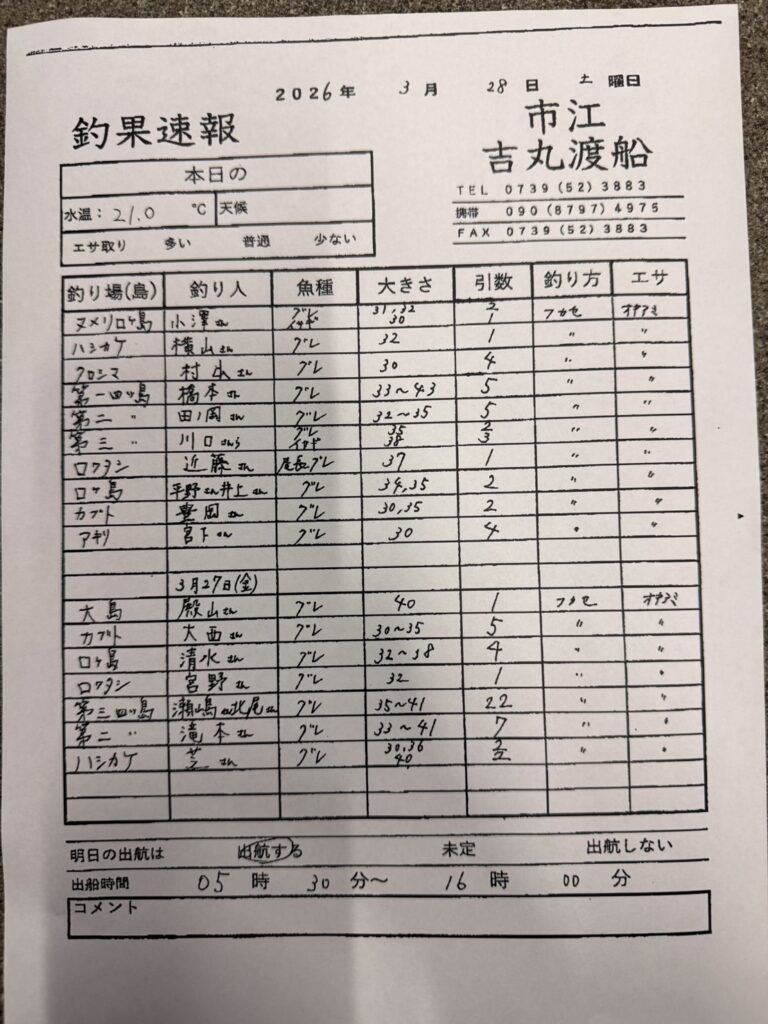 2026年 3月 28日 土曜日
釣果速報
市江
吉丸渡船
TEL 0739(52)3883
携帯 090(8797)4975
FAX 0739(52)3883
本日の
水温: 21.0 ℃ 天候
エサ取り 多い 普通 少ない
釣り場(島) 釣り人 魚種 大きさ 引数 釣り方 エサ
ヌメリロヶ島 小澤さん グレ イサギ 31,32 30 2 1 フカセ オキアミ
ハシカケ 横山さん グレ 32 1 〃 〃
クロシマ 村山さん グレ 30 4 〃 〃
第一四ツ島 橋本さん グレ 33〜43 5 〃 〃
第二 〃 田ノ岡さん グレ 32〜35 5 〃 〃
第三 〃 川口さんら グレ イサギ 35 38 2 3 〃 〃
ロクタン 近藤さん 尾長グレ 37 1 〃 〃
ロヶ島 平野さん井上さん グレ 34,35 2 〃 〃
カブト 豊岡さん グレ 30,35 2 〃 〃
アキリ 宮下さん グレ 30 4 〃 〃
3月27日(金)
大島 殿山さん グレ 40 1 フカセ オキアミ
カブト 大西さん グレ 30〜35 5 〃 〃
ロヶ島 清水さん グレ 32〜38 4 〃 〃
ロクタン 宮野さん グレ 32 1 〃 〃
第三四ツ島 瀬嶋さん北尾さん グレ 35〜41 22 〃 〃
第二 〃 滝本さん グレ 33〜41 7 〃 〃
ハシカケ 芝さん グレ 30,36 40 〃 〃
明日の出航は 出航する 未定 出航しない
出船時間 05時 30分〜 16時 00分
コメント